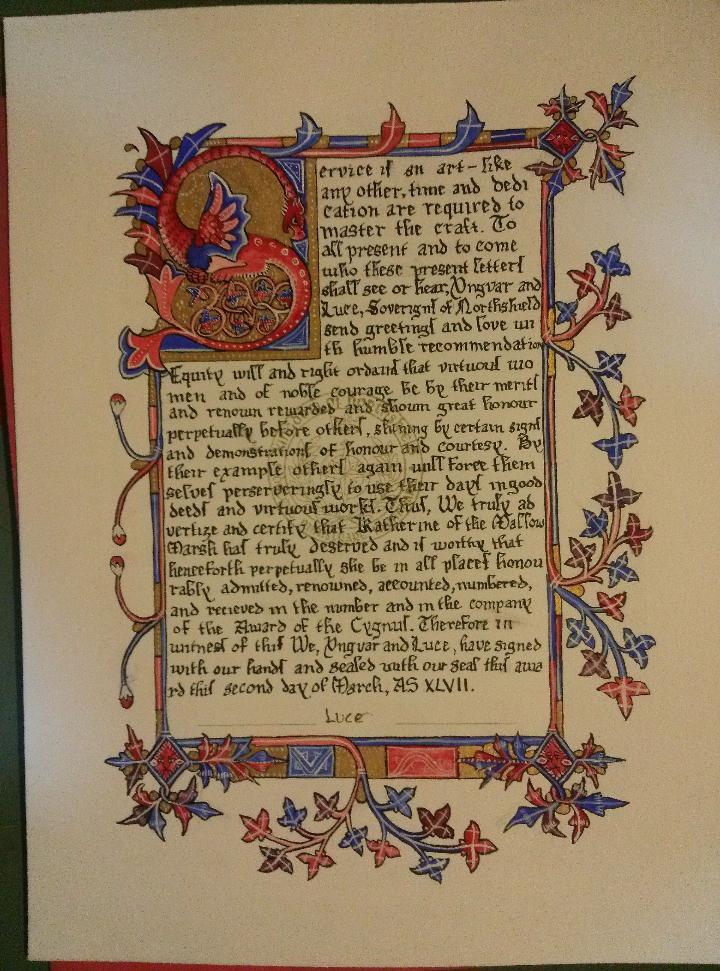 Service is an art - like
any other, time and dedi
cation are required to
master the craft. To
all present and to come
who these present letters
shall see or hear, Yngvar and
Luce, Soverigns of Northshield
send greetings and love wi
th humble recommendation
Equity will and right ordains that virtuous wo
men and of noble courage be by their merits
and renown rewarded and shown great honour
perpetually before others, shining by certain signs
and demonstrations of honour and courtesy. By
their example others again will force them
selves perserveringly to use their days in good
deeds and virtuous works. Thus, We truly ad
vertize and certify that Katherine of the Mallow
Marsh has truly deserved and is worthy that
henceforth perpetually she be in all places honou
rably admitted, renowned, accounted, numbered,
and recieved in the number and in the company
of the Award of the Cygnus. Therefore in
witness of this We, Yngvar and Luce, have signed
with our hands and sealed with our seal this awa
rd this second day of March, AS XLVII.
Luce